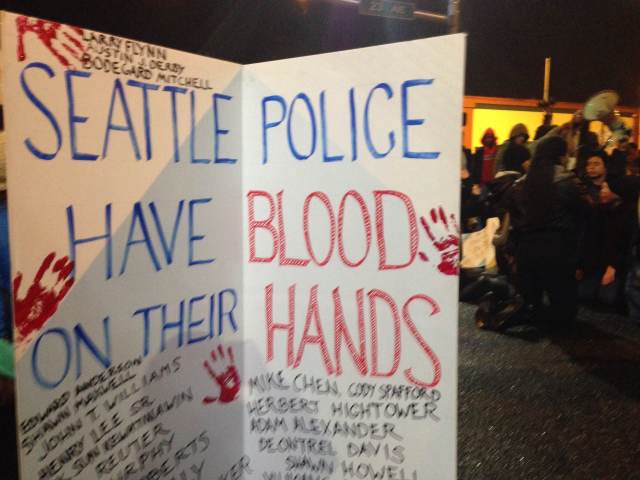 23
LARRY FLYNN
AUSTIN J. DERBY
BODEGARD MITCHELL
SEATTLE POLICE
HAVE BLOOD
ON THEIR HANDS
EDWARD ANDERSON
SHAWN MAXWELL
JOHN T. WILLIAMS
HENRY LEE SR.
SUN
REUTER
MIKE CHEN, CODY SPAFFORD
HERBERT HIGHTOWER
ADAM ALEXANDER
DEONTREL DAVIS
SHAWN HOWELL